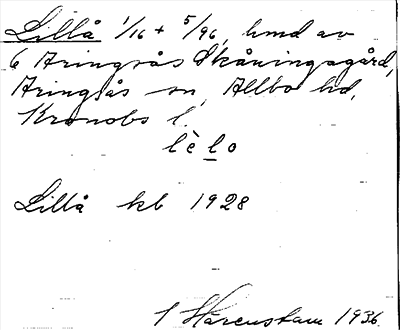 Lillå 1/16 + 5/96, hmd av
6 Aringsås Skåningsgård,
Aringsås sn, Allbo hd,
Kronobs l.
lè l o
Lillå kb 1928
I Härenstam 1936.